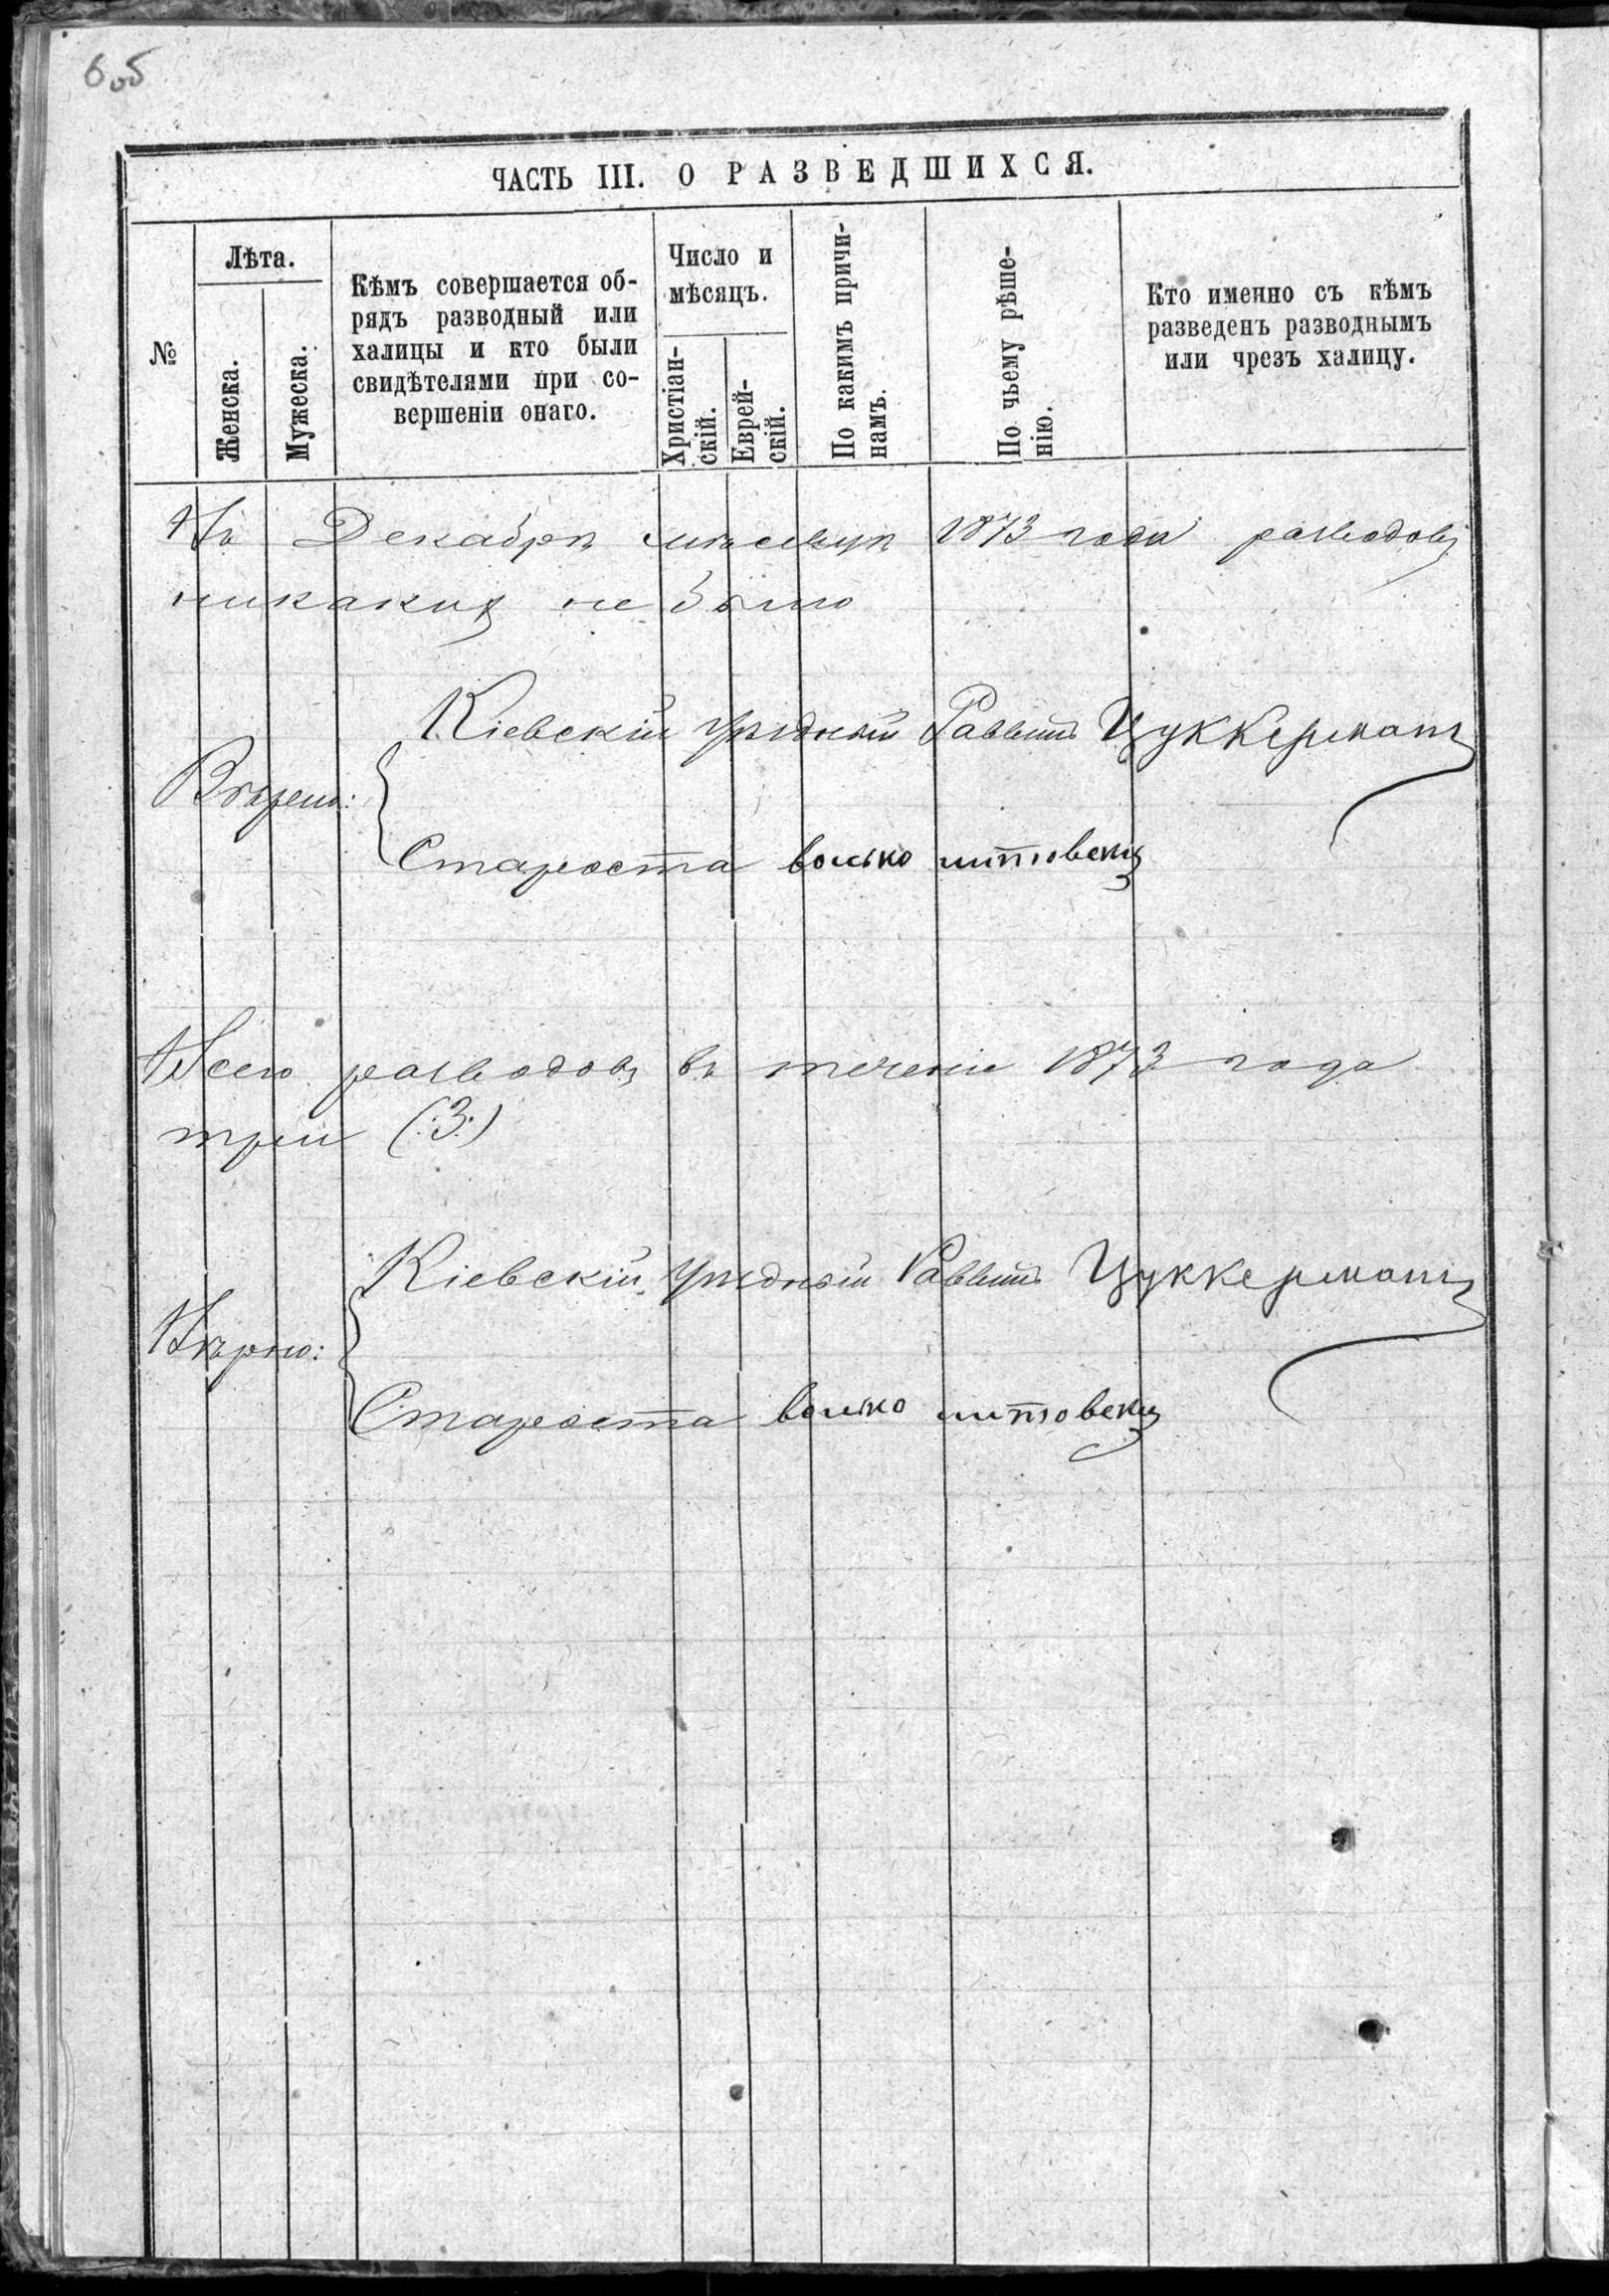 6 об
ЧАСТЬ III. О РАЗВЕДШИХСЯ.
№
Лѣта.
Женска.
Мужеска.
Кѣмъ совершается об-
рядъ разводный или
халицы и кто были
свидѣтелями при со-
вершеніи онаго.
Число и
мѣсяцъ.
Христіан-
скій.
Еврей-
скій.
По какимъ причи-
намъ.
По чьему рѣше-
нію.
Кто именно съ кѣмъ
разведенъ разводнымъ
или чрезъ халицу.
Въ Декабрѣ мѣсяцѣ 1873 года разводовъ
никакихъ не было
Кіевскій Уѣздный Раввинъ Цуккерманъ
Вѣрно:
Староста волько литовскъ
Всего разводовъ въ теченіе 1873 года
три (:3:)
Кіевскій Уѣздный Раввинъ Цуккерманъ
Вѣрно:
Староста волько литовскъ